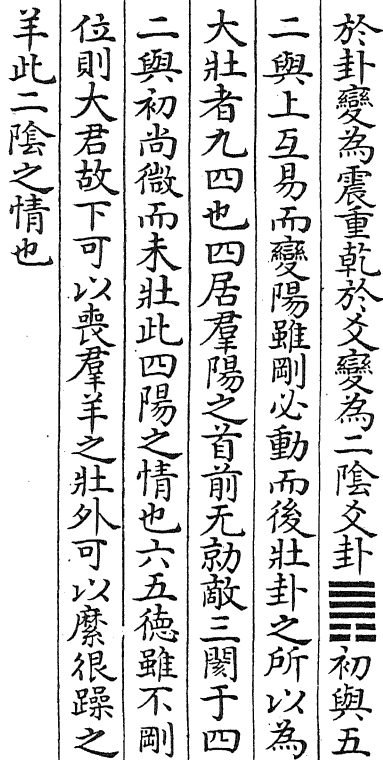 於卦變為震重乾於爻變為二陰爻卦䷠初與五
二與上互易而變陽雖剛必動而後壯卦之所以為
大壯者九四也四居羣陽之首前无勍敵三閡于四
二與初尚微而未壯此四陽之情也六五德雖不剛
位則大君故下可以喪羣羊之壯外可以縻很躁之
羊此二陰之情也